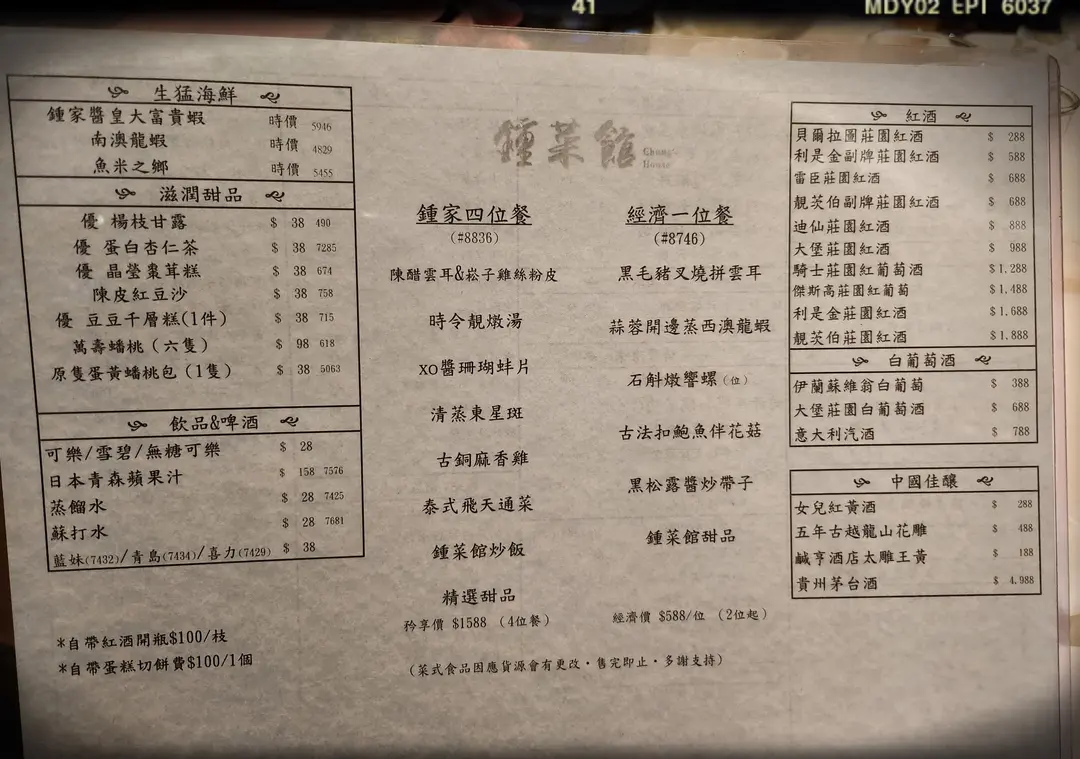 41
MDY02 EPI 6037
生猛海鮮
鍾家醬皇大富貴蝦 時價 5946
南澳龍蝦 時價 4829
魚米之鄉 時價 5455
滋潤甜品
優 楊枝甘露 $ 38 490
優 蛋白杏仁茶 $ 38 7285
優 晶瑩棗茸糕 $ 38 674
陳皮紅豆沙 $ 38 758
優 豆豆千層糕(1件) $ 38 715
萬壽蟠桃(六隻) $ 98 618
原隻蛋黃蟠桃包(1隻) $ 38 5063
飲品&啤酒
可樂/雪碧/無糖可樂 $ 28
日本青森蘋果汁 $ 158 7576
蒸餾水 $ 28 7425
蘇打水 $ 28 7681
藍妹(7432)/青島(7434)/喜力(7429) $ 38
*自帶紅酒開瓶$100/枝
*自帶蛋糕切餅費$100/1個
鍾菜館
Chung's
House
鍾家四位餐
(#8836)
陳醋雲耳&崧子雞絲粉皮
時令靚燉湯
XO醬珊瑚蚌片
清蒸東星斑
古銅麻香雞
泰式飛天通菜
鍾菜館炒飯
精選甜品
矜享價 $1588 (4位餐)
經濟一位餐
(#8746)
黑毛豬叉燒拼雲耳
蒜蓉開邊蒸西澳龍蝦
石斛燉響螺(位)
古法扣鮑魚伴花菇
黑松露醬炒帶子
鍾菜館甜品
經濟價 $588/位 (2位起)
(菜式食品因應貨源會有更改・售完即止・多謝支持)
紅酒
貝爾拉圖莊園紅酒 $ 288
利是金副牌莊園紅酒 $ 588
雷臣莊園紅酒 $ 688
靚茨伯副牌莊園紅酒 $ 688
迪仙莊園紅酒 $ 888
大堡莊園紅酒 $ 988
騎士莊園紅葡萄酒 $1.288
傑斯高莊園紅葡萄 $1.488
利是金莊園紅酒 $1.688
靚茨伯莊園紅酒 $1.888
白葡萄酒
伊蘭蘇維翁白葡萄 $ 388
大堡莊園白葡萄酒 $ 688
意大利汽酒 $ 788
中國佳釀
女兒紅黃酒 $ 288
五年古越龍山花雕 $ 488
鹹亨酒店太雕王黃 $ 188
貴州茅台酒 $ 4.988